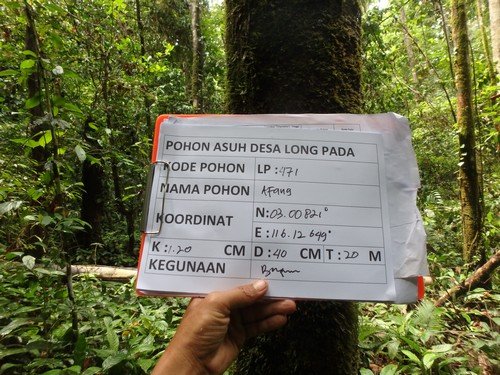 POHON ASUH DESA LONG PADA
KODE POHON LP : 471
NAMA POHON Afang
KOORDINAT N: 03.00821°
E : 116.12649°
K : 1.20 CM D : 40 CM T : 20 M
KEGUNAAN